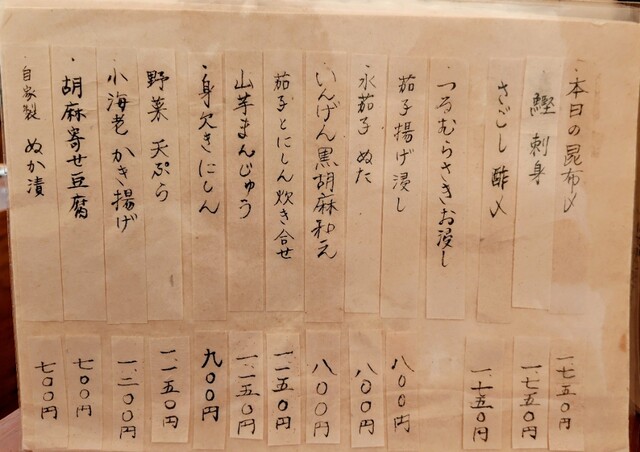 ・本日の昆布〆
鰹 刺身
さごし 酢〆
・つるむらさきお浸し
茄子揚げ浸し
水茄子 ぬた
いんげん黒胡麻和え
茄子とにしん炊き合せ
山芋まんじゅう
・身欠きにしん
野菜 天ぷら
小海老 かき揚げ
・胡麻寄せ豆腐
自家製 ぬか漬
一.七五〇円
一.七五〇円
一.一五〇円
八〇〇円
八〇〇円
八〇〇円
一.一五〇円
一.一五〇円
九〇〇円
一.一五〇円
一.二〇〇円
七〇〇円
七〇〇円